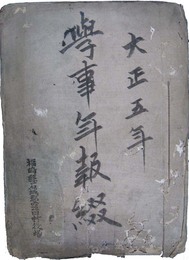 大正五年
學事年報綴